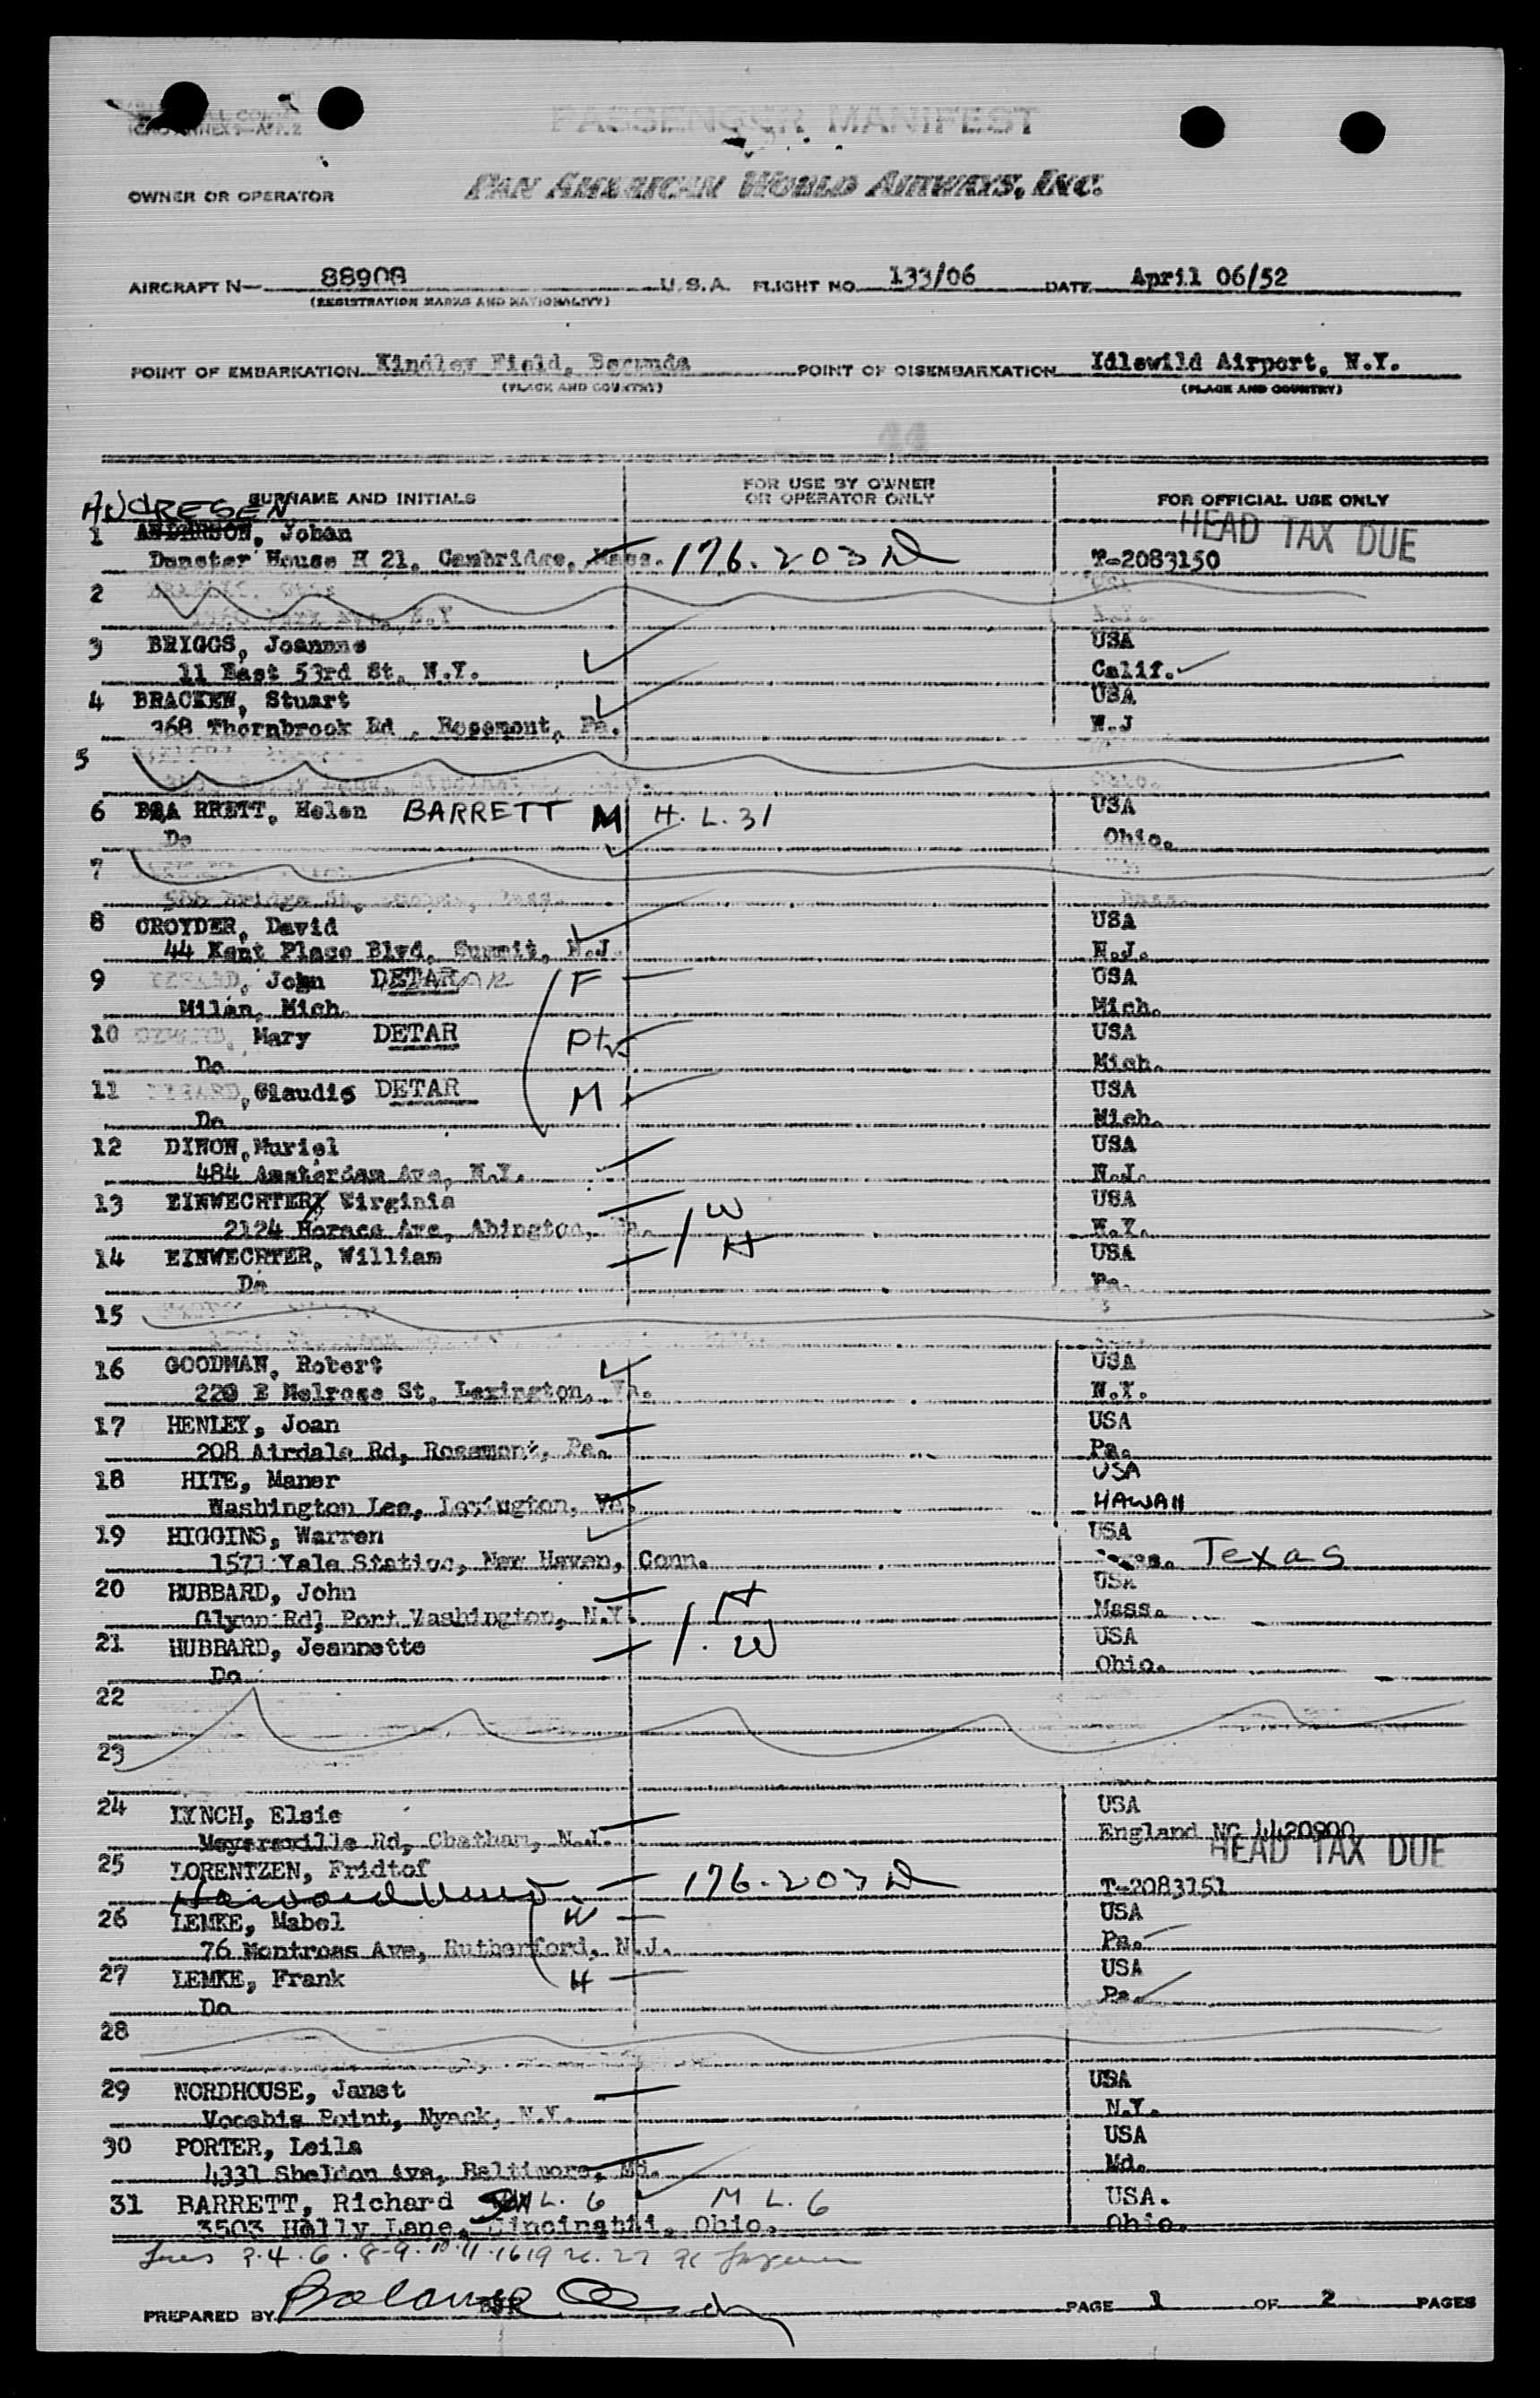 PASSENGER MANIFEST
OWNER OR OPERATOR PAN AMERICAN WORLD AIRWAYS, INC.
AIRCRAFT N— 88908 U.S.A. FLIGHT NO. 133/06 DATE April 06/52
(REGISTRATION MARKS AND NATIONALITY)
POINT OF EMBARKATION Kindley Field, Bermuda POINT OF DISEMBARKATION Idlewild Airport, N.Y.
(PLACE AND COUNTRY) (PLACE AND COUNTRY)
44
SURNAME AND INITIALS FOR USE BY OWNER OR OPERATOR ONLY FOR OFFICIAL USE ONLY
ANDRESEN HEAD TAX DUE
1 ANDERSON, Johan
Dunster House H 21, Cambridge, Mass. 176.203 T-2083150
2
3 BRIGGS, Joannne USA
11 East 53rd St, N.Y. Calif.
4 BRACKEN, Stuart USA
368 Thornbrook Rd, Rosemont, Pa. N.J
5
6 BRA RRETT, Helen BARRETT M H. L. 31 USA
Do Ohio.
7
8 CROYDER, David USA
44 Kent Place Blvd, Summit, N.J. N.J.
9 John DETAR F USA
Milan, Mich. Mich.
10 Mary DETAR USA
Do Mich.
11 Claudis DETAR M USA
Do Mich.
12 DIHON, Muriel USA
484 Amsterdam Ave, N.Y. N.J.
13 EINWECHTER, Virginia W USA
2124 Horace Ave, Abington, Pa. N.Y.
14 EINWECHTER, William H USA
Do Pa.
15
16 GOODMAN, Robert USA
220 E Melrose St, Lexington, Va. N.Y.
17 HENLEY, Joan USA
208 Airdale Rd, Rosemont, Pa. Pa.
18 HITE, Maner USA
Washington Lee, Lexington, Va. HAWAII
19 HIGGINS, Warren USA
1571 Yale Station, New Haven, Conn. Texas
20 HUBBARD, John H USA
Glynn Rd, Port Washington, N.Y. Mass.
21 HUBBARD, Jeannette W USA
Do Ohio.
22
23
24 LYNCH, Elsie USA
Meyersville Rd, Chatham, N.J. England NC 4420900
25 LORENTZEN, Fridtof 176.203 HEAD TAX DUE
T-2083151
26 LEMKE, Mabel W USA
76 Montross Ave, Rutherford, N.J. Pa.
27 LEMKE, Frank H USA
Do Pa.
28
29 NORDHOUSE, Janet USA
Vooshis Point, Nyack, N.Y. N.Y.
30 PORTER, Leila USA
4331 Sheldon Ave, Baltimore, Md. Md.
31 BARRETT, Richard SON L. 6 M L. 6 USA.
3503 Holly Lane, Cincinatti, Ohio. Ohio.
3.4.6.8-9.10.11.16 19 26.27
PREPARED BY PAGE 1 OF 2 PAGES